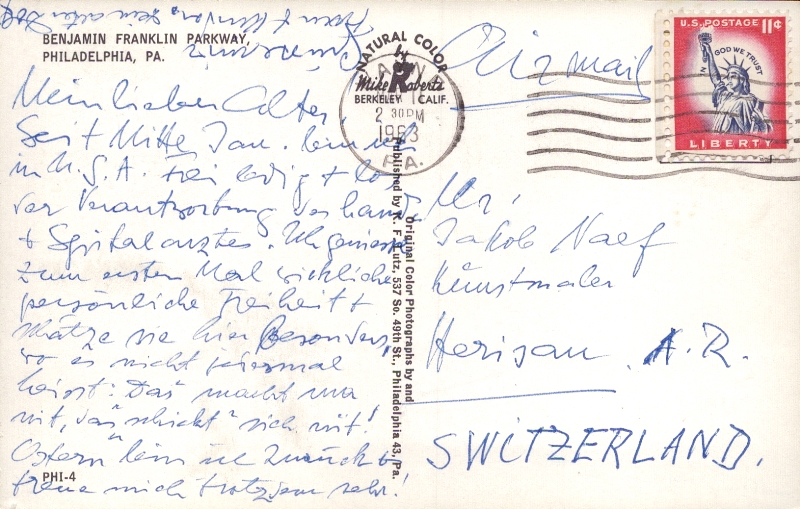 BENJAMIN FRANKLIN PARKWAY,
PHILADELPHIA, PA.
Mein lieber Alter!
Seit Mitte Jan. bin ich
in U.S.A. frei ledig + los
der Verantwortung des Land
+ Spitalarztes. Ich geniesse
zum ersten Mal wirkliche
persönliche Freiheit +
schätze sie hier besonders,
wo es nicht jedesmal
heisst: Das macht man
nit, das "schickt" sich nit!
Ostern bin ich zurück +
freue mich trotzdem sehr!
sein alter
PHI-4
NATURAL COLOR
by
Mike Roberts
BERKELEY CALIF.
2 30 PM
1963
PA.
Original Color Photographs by and
Published by R. F. Lutz, 537 So. 49th St., Philadelphia 43, Pa.
Air mail
U.S. POSTAGE 11¢
IN GOD WE TRUST
LIBERTY
Mr.
Jakob Naef
Kunstmaler
Herisau A.R.
SWITZERLAND.